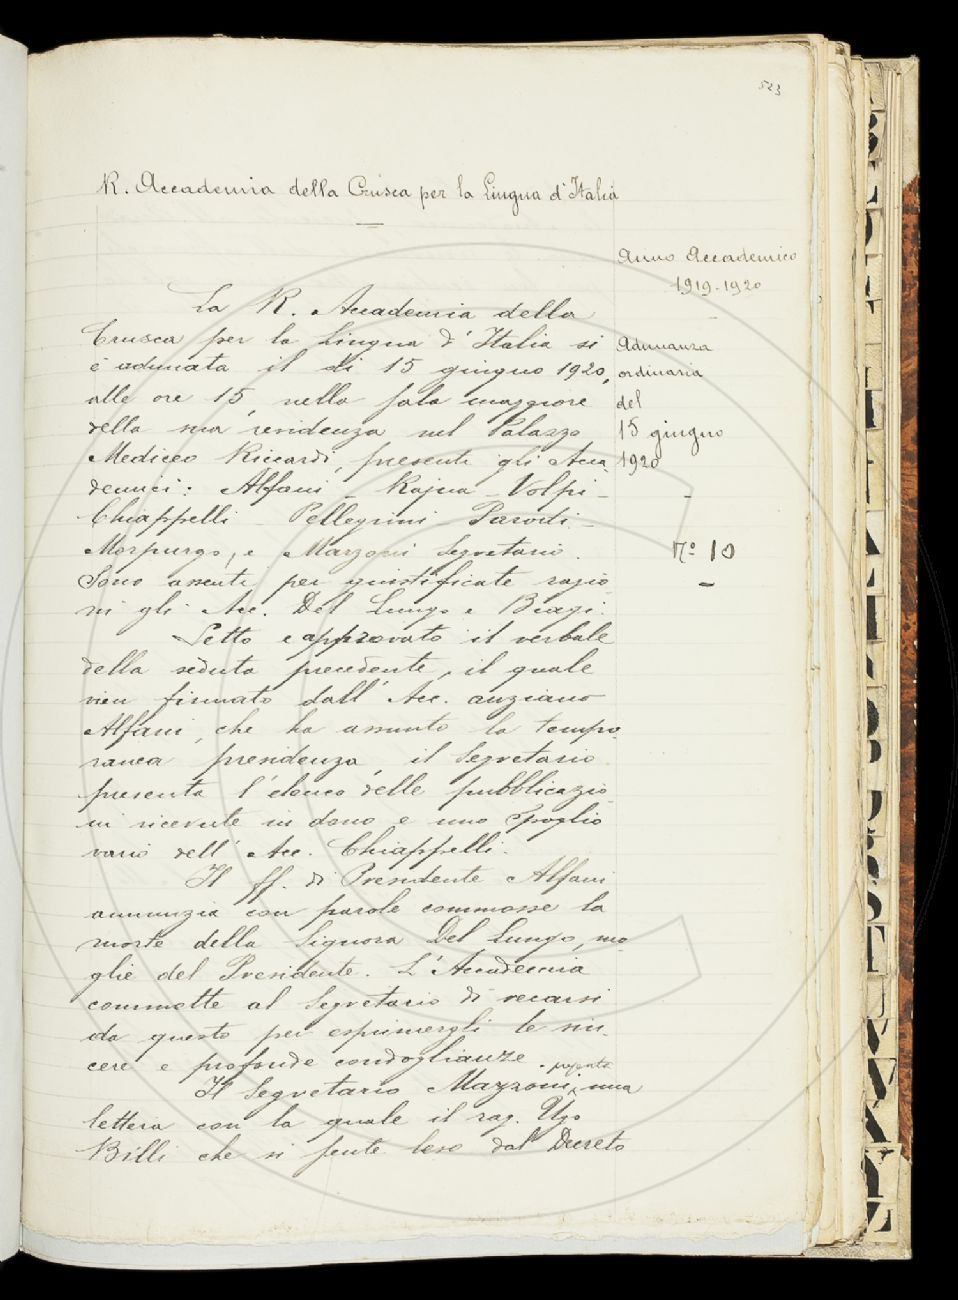 523
R. Accademia della Crusca per la Lingua d'Italia
Anno Accademico
1919-1920
Adunanza
ordinaria
del
15 giugno
1920
N.º 10
La R. Accademia della
Crusca per la Lingua d'Italia si
è adunata il dì 15 giugno 1920,
alle ore 15, nella sala maggiore
della sua residenza nel Palazzo
Mediceo Riccardi, presenti gli Acca
demici: Alfani - Rajna - Volpi -
Chiappelli - Pellegrini - Parodi -
Morpurgo, e Mazzoni Segretario.
Sono assenti per giustificate ragio
ni gli Acc. Del Lungo e Biagi.
Letto e approvato il verbale
della seduta precedente, il quale
vien firmato dall'Acc. anziano
Alfani, che ha assunto la tempo
ranea presidenza, il Segretario
presenta l'elenco delle pubblicazio
ni ricevute in dono e uno spoglio
vario dell'Acc. Chiappelli.
Il ff. di Presidente Alfani
annunzia con parole commosse la
morte della Signora Del Lungo, mo
glie del Presidente. L'Accademia
commette al Segretario di recarsi
da questo per esprimergli le sin-
cere e profonde condoglianze.
Il Segretario Mazzoni presenta una
lettera con la quale il rag. Ugo
Billi che si sente leso dal Decreto